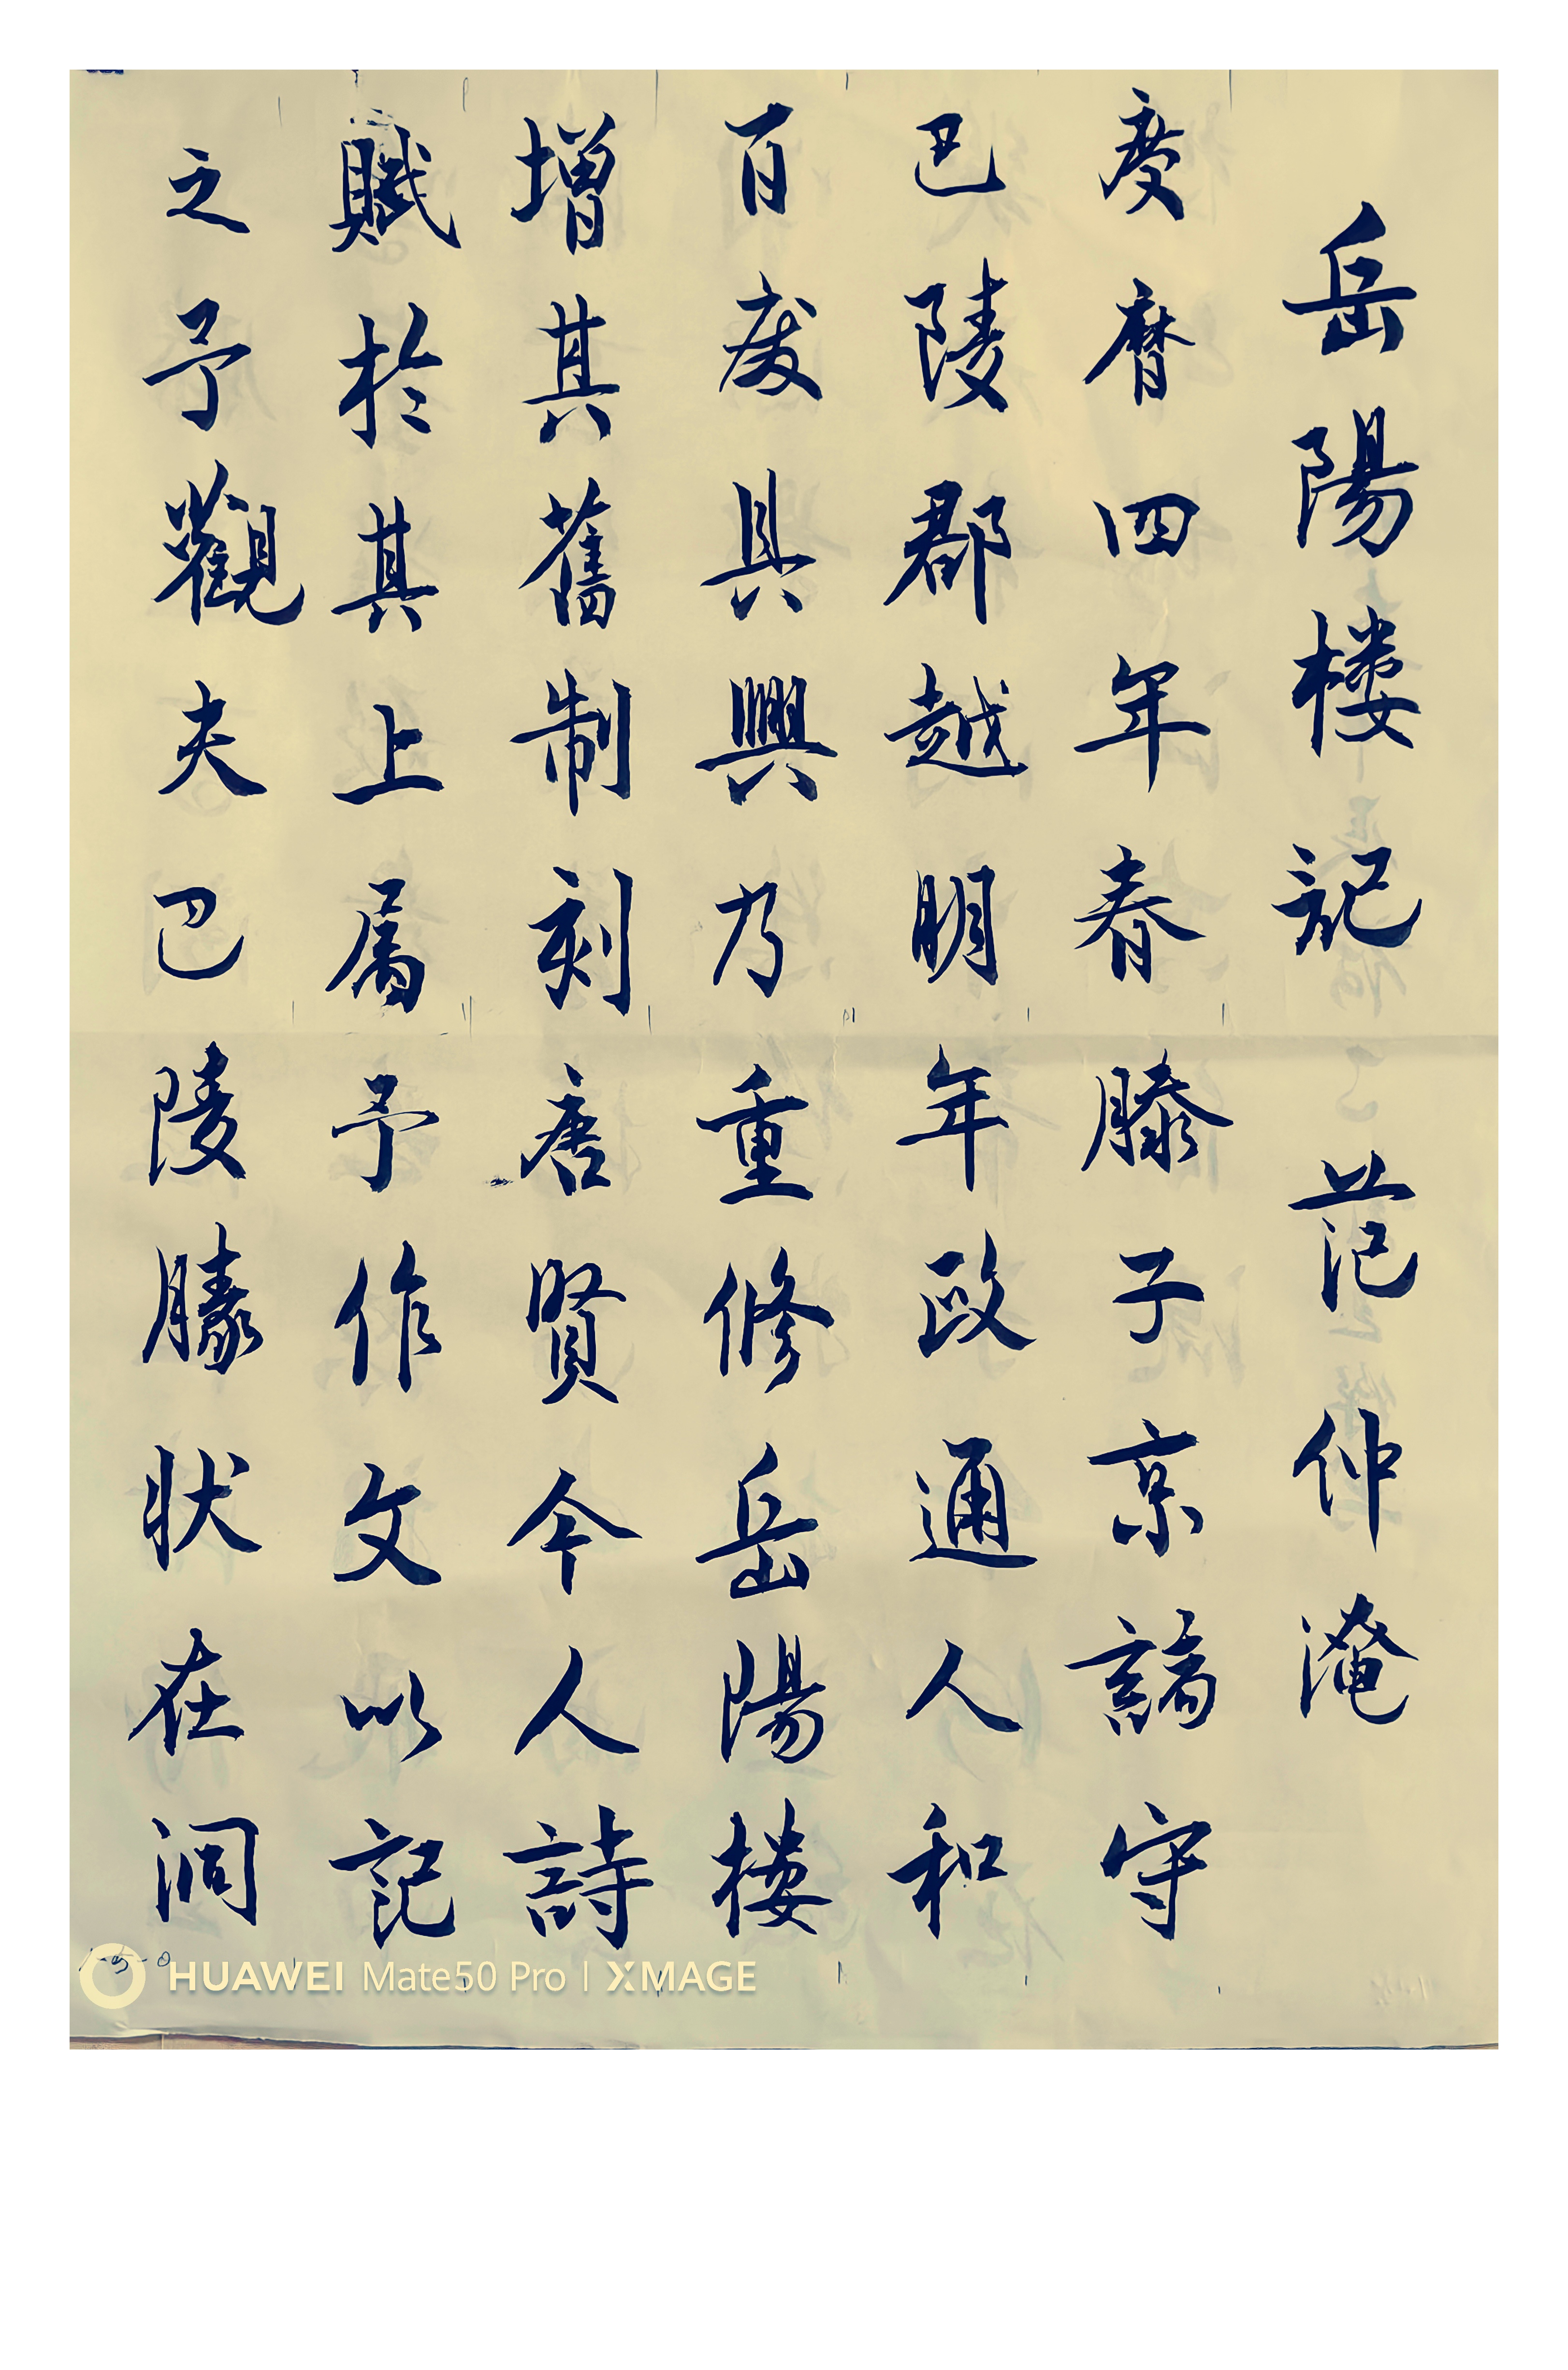 岳陽楼記 范仲淹
慶曆四年春滕子京謫守
巴陵郡越明年政通人和
百废具興乃重修岳陽楼
增其舊制刻唐賢今人詩
賦於其上属予作文以記
之予觀夫巴陵勝状在洞
HUAWEI Mate50 Pro | XMAGE